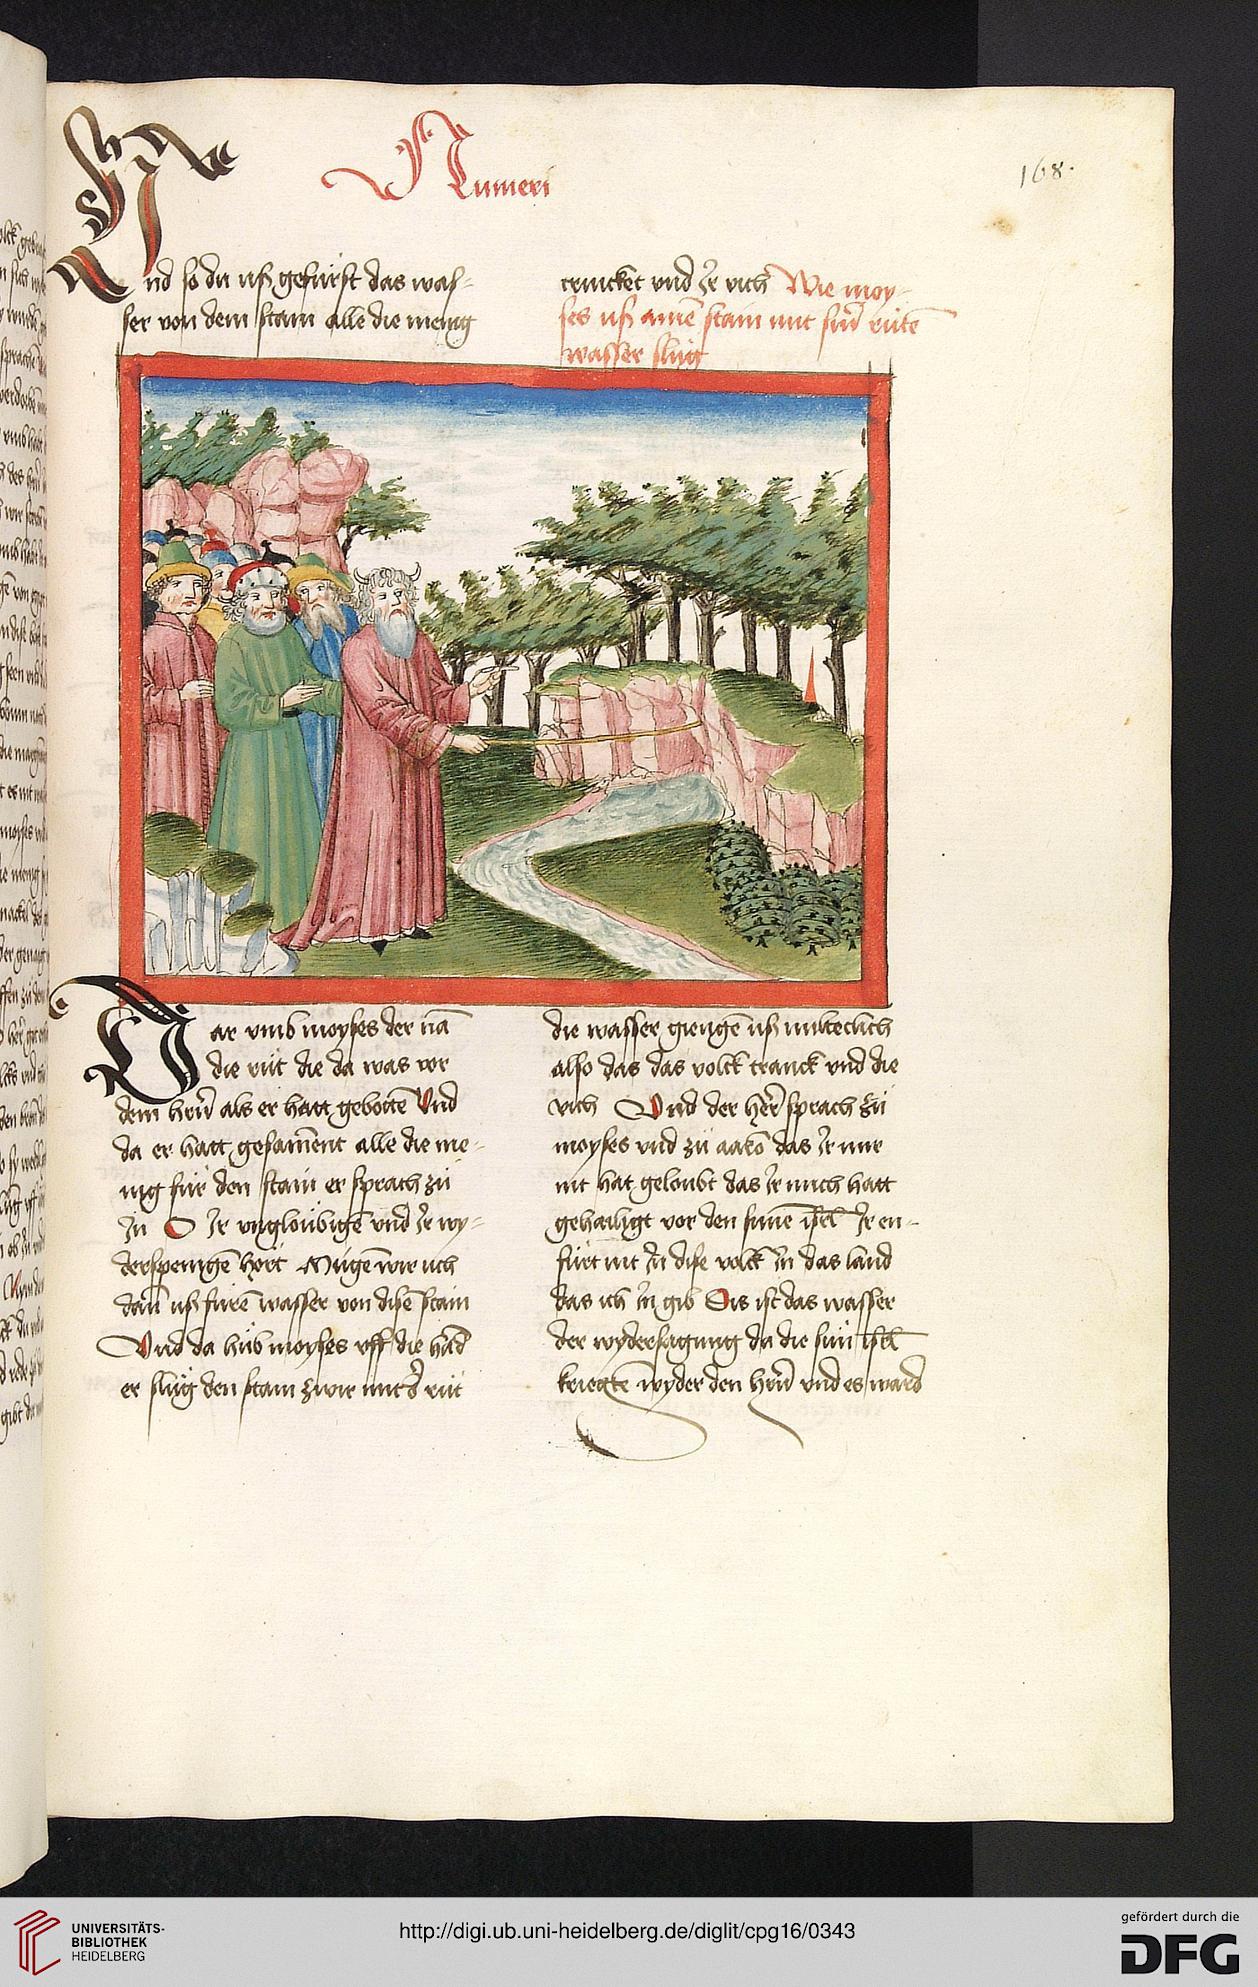 Numeri
168.
Vnd so du uß gefürst das was-
ser von dem stain alle die menig
trincket vnd Ir vich Wie moy-
ses uß ainē stain mit sinr̄ rütē
wasser slüg
Dar vmb moyses der nā
die rüt die da was vor
dem hrn̄ als er hatt gebottē Vnd
da er hatt gesam̄ent alle die me-
nig für den stain er sprach zü
In O Ir vnglöubigē vnd Ir wy-
derspenigē hört Mügē wir uch
dan̄ uß fürē wasser von disē stain
Vnd da hüb moyses vff die hād
er slüg den stain zwir mit d' rüt
die wasser giengē uß milteclich
also das das volck tranck vnd die
vich Vnd der her̄ sprach zü
moyses vnd zü aarō das Ir mir
nit hat geloubt das Ir mich hatt
gehailigt vor den sūne isrl̄ Ir en-
fürt nit In dise volck In das land
das ich In gib Dis ist das wasser
der wydersagung da die sün isrl̄
kriegtē wyder den hrn̄ vnd es ward
UNIVERSITÄTS-
BIBLIOTHEK
HEIDELBERG
http://digi.ub.uni-heidelberg.de/diglit/cpg16/0343
gefördert durch die
DFG